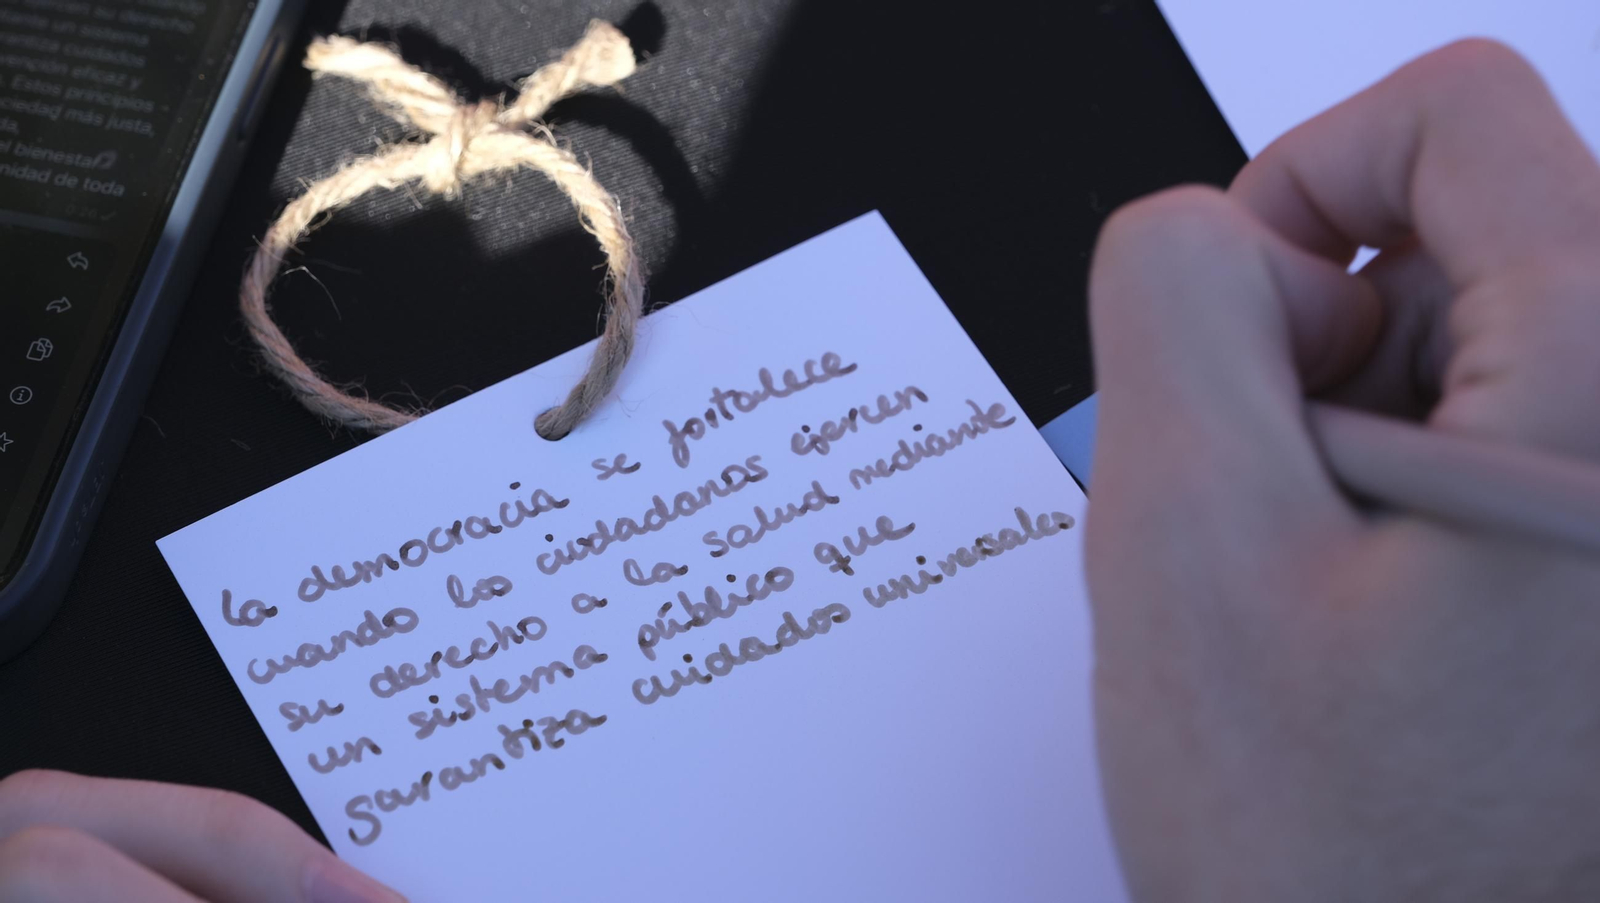 su derecho
un sistema
cuidados
eficaz y
Estos principios
más justa,
el bienestar
de toda
La democracia se fortalece
cuando los ciudadanos ejercen
su derecho a la salud mediante
un sistema público que
garantiza cuidados universales